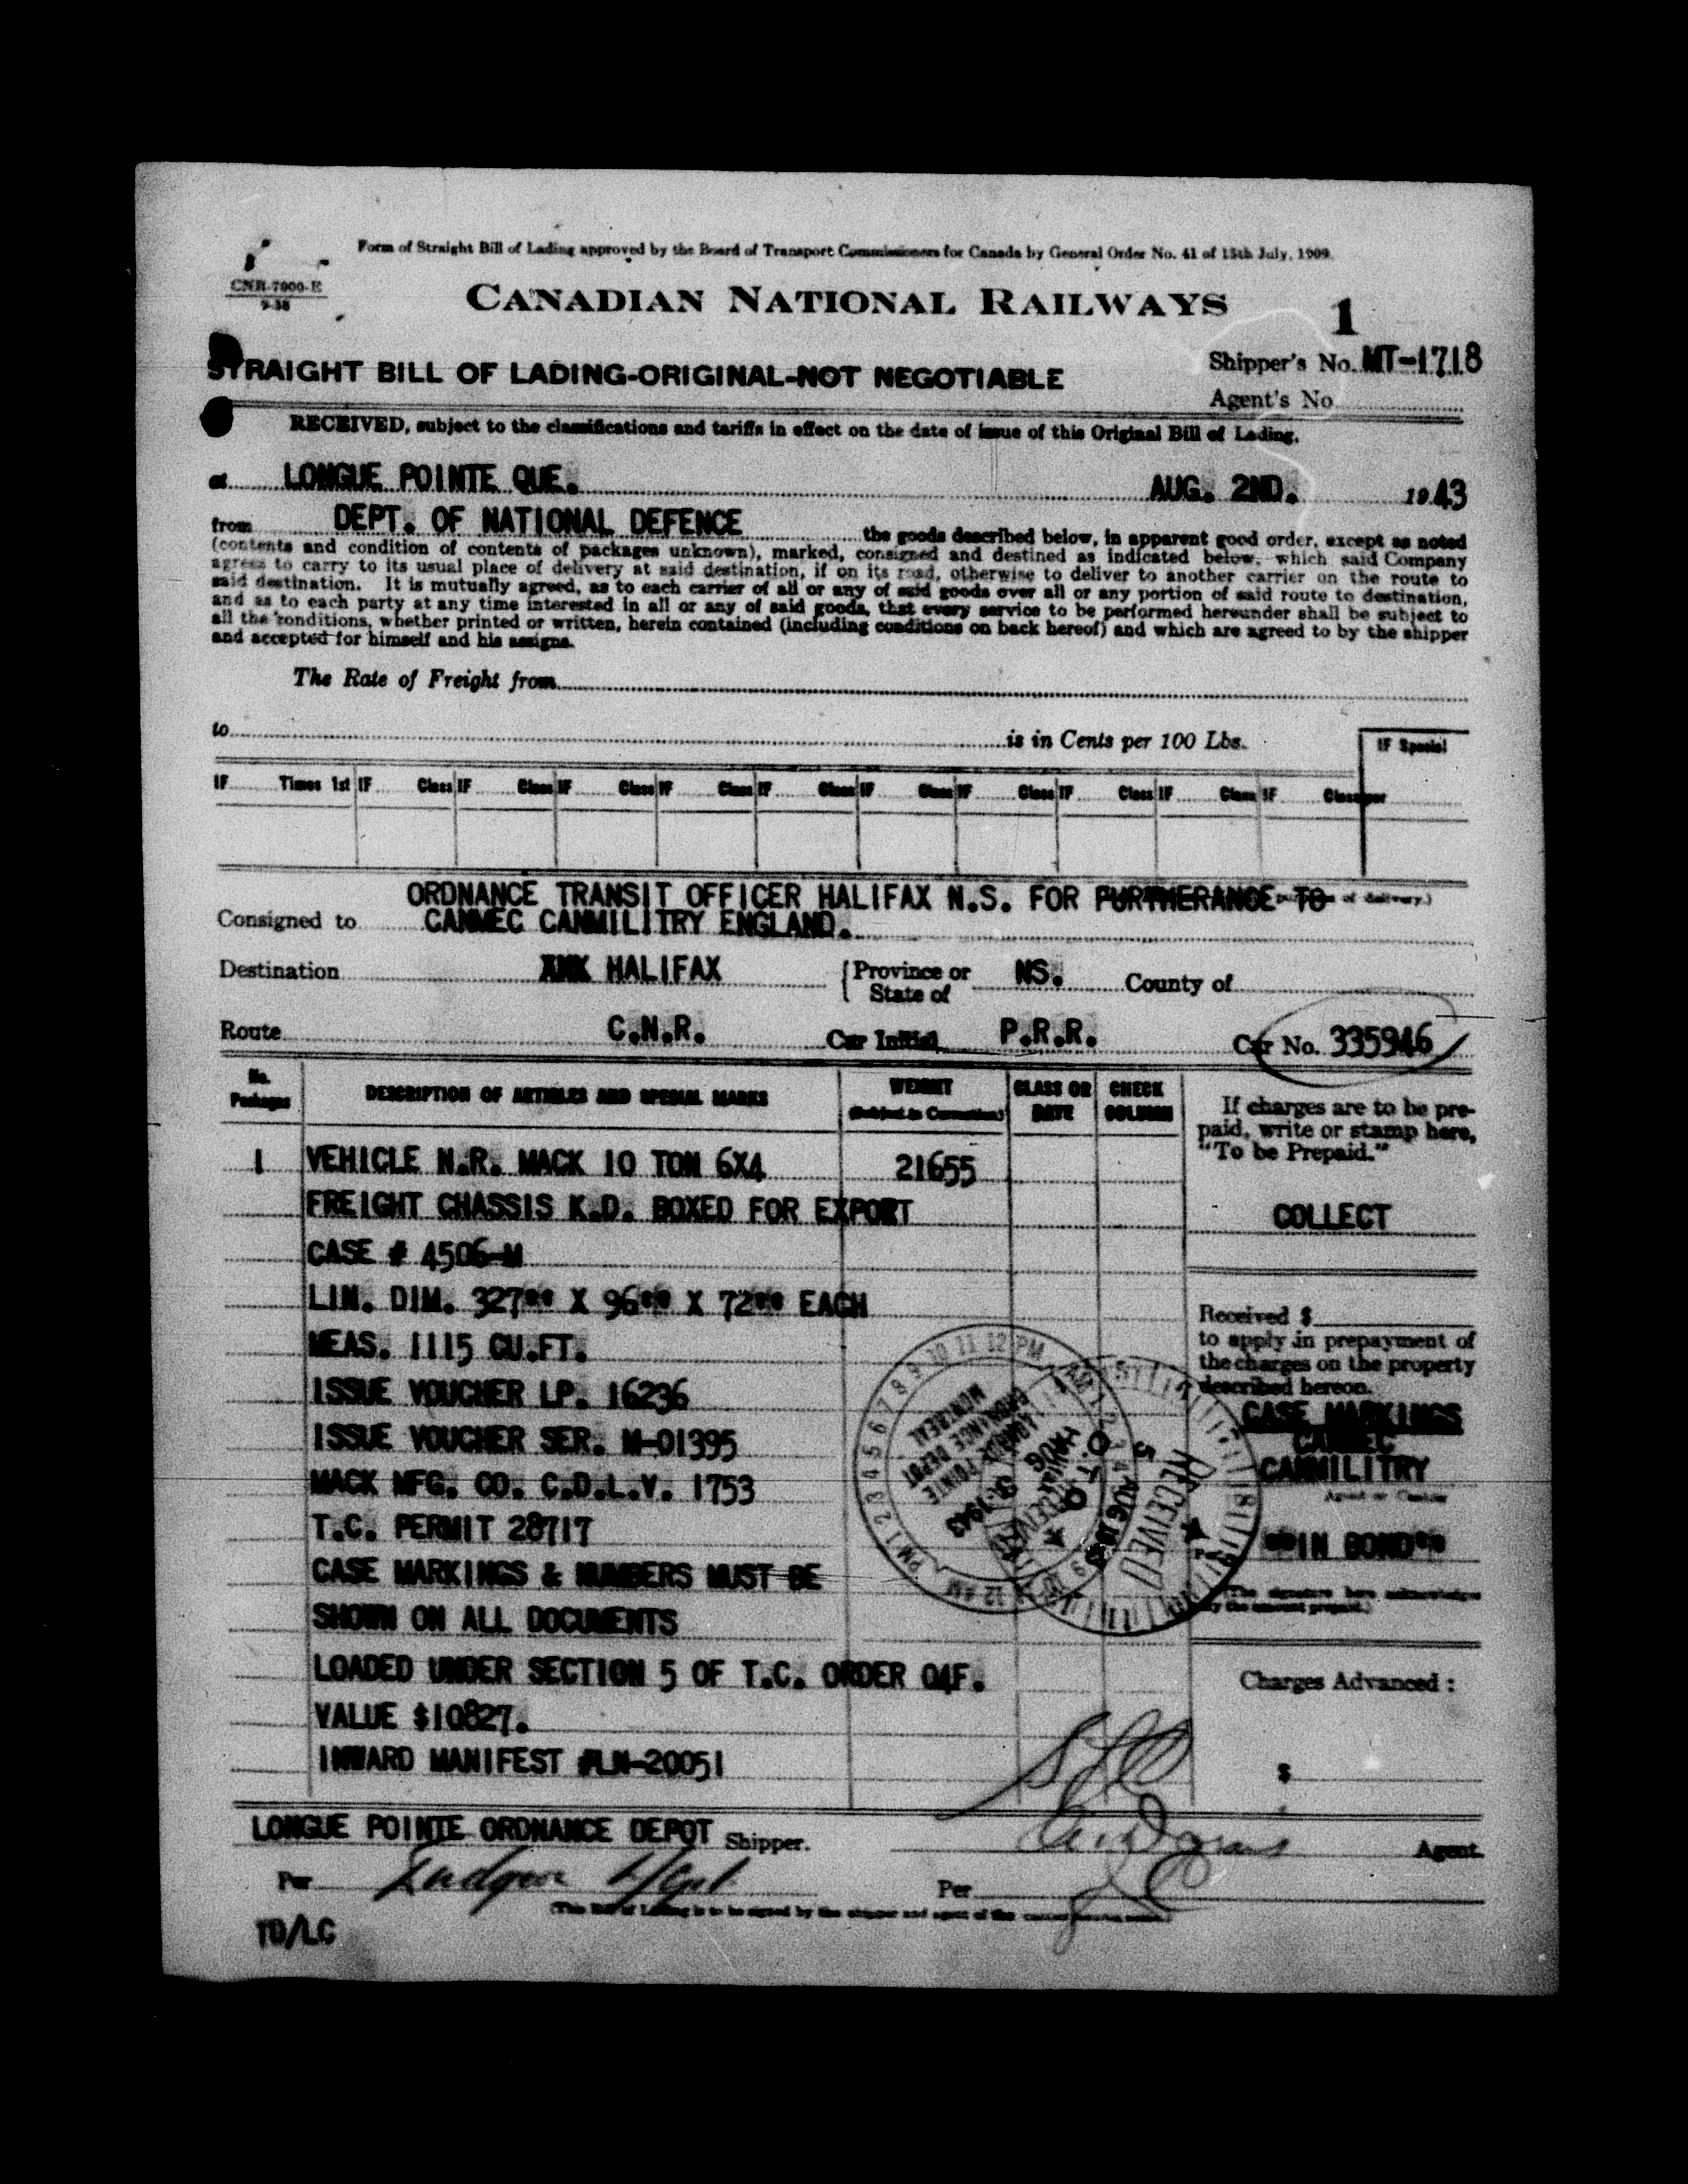 Form of Straight Bill of Lading approved by the Board of Transport Commissioners for Canada by General Order No. 41 of 15th July, 1909.
CNR-7000-E
9-38
CANADIAN NATIONAL RAILWAYS
1
STRAIGHT BILL OF LADING-ORIGINAL-NOT NEGOTIABLE
Shipper's No. MT-1718
Agent's No
RECEIVED, subject to the classifications and tariffs in effect on the date of issue of this Original Bill of Lading,
at LONGUE POINTE QUE. AUG. 2ND. 1943
from DEPT. OF NATIONAL DEFENCE the goods described below, in apparent good order, except as noted
(contents and condition of contents of packages unknown), marked, consigned and destined as indicated below, which said Company
agrees to carry to its usual place of delivery at said destination, if on its road, otherwise to deliver to another carrier on the route to
said destination. It is mutually agreed, as to each carrier of all or any of said goods over all or any portion of said route to destination,
and as to each party at any time interested in all or any of said goods, that every service to be performed hereunder shall be subject to
all the conditions, whether printed or written, herein contained (including conditions on back hereof) and which are agreed to by the shipper
and accepted for himself and his assigns.
The Rate of Freight from
to is in Cents per 100 Lbs.
IF Special
IF Times 1st IF Class IF Class IF Class IF Class IF Class IF Class IF Class IF Class IF Class IF Class per
ORDNANCE TRANSIT OFFICER HALIFAX N.S. FOR FURTHERANCE TO
Consigned to CANMEC CANMILITRY ENGLAND.
Destination HALIFAX Province or State of NS. County of
Route C.N.R. Car Initial P.R.R. Car No. 335946
No. Packages DESCRIPTION OF ARTICLES AND SPECIAL MARKS WEIGHT (Subject to Correction) CLASS OR RATE CHECK COLUMN
If charges are to be pre-
paid, write or stamp here,
"To be Prepaid."
COLLECT
1 VEHICLE N.R. MACK 10 TON 6X4 21655
FREIGHT CHASSIS K.D. BOXED FOR EXPORT
CASE # 4506-M
LIN. DIM. 327"" X 96"" X 72"" EACH
MEAS. 1115 CU.FT.
ISSUE VOUCHER LP. 16236
ISSUE VOUCHER SER. M-01395
MACK MFG. CO. C.D.L.V. 1753
T.C. PERMIT 28717
CASE MARKINGS & NUMBERS MUST BE
SHOWN ON ALL DOCUMENTS
LOADED UNDER SECTION 5 OF T.C. ORDER O4F.
VALUE $10827.
INWARD MANIFEST #LN-20051
Received $
to apply in prepayment of
the charges on the property
described hereon.
CASE MARKINGS
CANMEC
CANMILITRY
Agent or Cashier
""IN BOND""
(The signature here acknowledges
only the amount prepaid.)
Charges Advanced:
$
RECEIVED
LONGUE POINTE
ORDNANCE DEPOT
MONTREAL
AUG 1943
LONGUE POINTE ORDNANCE DEPOT Shipper.
Agent.
Per
Per
(This Bill of Lading is to be signed by the shipper and agent of the carrier issuing same.)
TD/LC